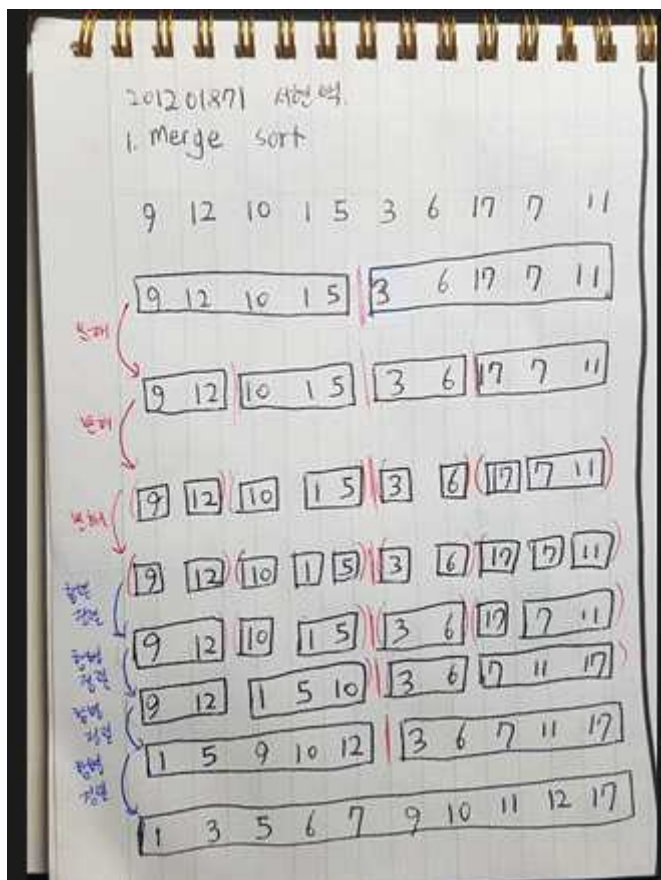 201201871
1. Merge sort
9 12 10 1 5 3 6 17 7 11
9 12 10 1 5 3 6 17 7 11
분해
9 12 10 1 5 3 6 17 7 11
분해
9 12 10 1 5 3 6 17 7 11
분해
9 12 10 1 5 3 6 17 7 11
9 12 10 1 5 3 6 17 7 11
9 12 1 5 10 3 6 7 11 17
1 5 9 10 12 3 6 7 11 17
1 3 5 6 7 9 10 11 12 17